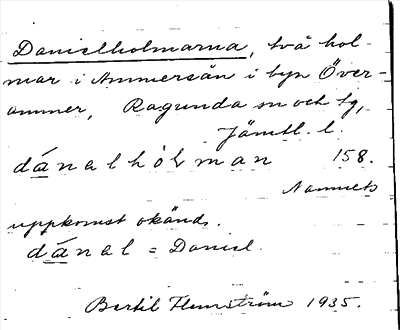 Danielholmarna, två hol-
mar i Ammerån i byn Över-
ammer, Ragunda sn och tg,
Jämtl. l.
dánalhólman 158.
Namnets
uppkomst okänd.
dánal = Daniel.
Bertil Flemström 1935.